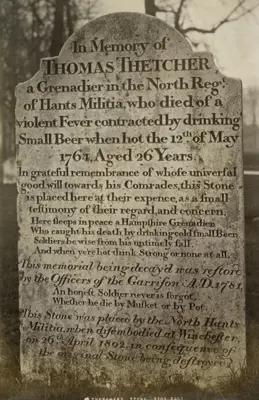 In Memory of
THOMAS THETCHER
a Grenadier in the North Regt.
of Hants Militia, who died of a
violent Fever contracted by drinking
Small Beer when hot the 12th of May
1764. Aged 26 Years.
In grateful remembrance of whose universal
good will towards his Comrades, this Stone
is placed here at their expence, as a small
testimony of their regard, and concern.
Here sleeps in peace a Hampshire Grenadier,
Who caught his death by drinking cold small Beer
Soldiers be wise from his untimely fall
And when ye're hot drink Strong or none at all.
This memorial being decay'd was restor'd
by the Officers of the Garrison A.D. 1781,
An honest Soldier never is forgot,
Whether he die by Musket or by Pot.
This Stone was placed by the North Hants
Militia, when disembodied at Winchester,
on 26th April 1802, in consequence of
the original Stone being destroyed